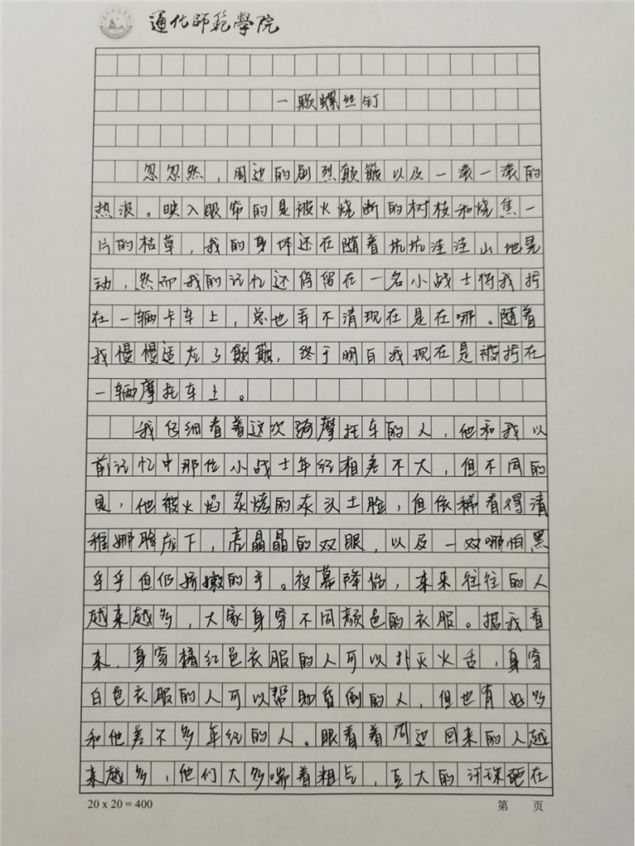 通化师范学院
一颗螺丝钉
忽忽然，周边的剧烈颠簸以及一滚一滚的
热浪。映入眼帘的是被火烧断的树枝和烧焦一
片的枯草，我的身体还在随着坑坑洼洼山地晃
动，然而我的记忆还停留在一名小战士将我拧
在一辆卡车上，总也弄不清现在是在哪。随着
我慢慢适应了颠簸，终于明白我现在是被拧在
一辆摩托车上。
我仔细看着这次骑摩托车的人，他和我以
前记忆中那位小战士年纪相差不大，但不同的
是，他被火焰炙烤的灰头土脸，但依稀看得清
稚嫩脸庞下，亮晶晶的双眼，以及一双哪怕黑
乎乎但仍娇嫩的手。夜幕降临，来来往往的人
越来越多，大家身穿不同颜色的衣服。据我看
来，身穿橘红色衣服的人可以扑灭火舌，身穿
白色衣服的人可以帮助昏倒的人，但也有好多
和他差不多年纪的人。眼看着周边回来的人越
来越多，他们大多喘着粗气，豆大的汗珠砸在
20 x 20 = 400
第 页